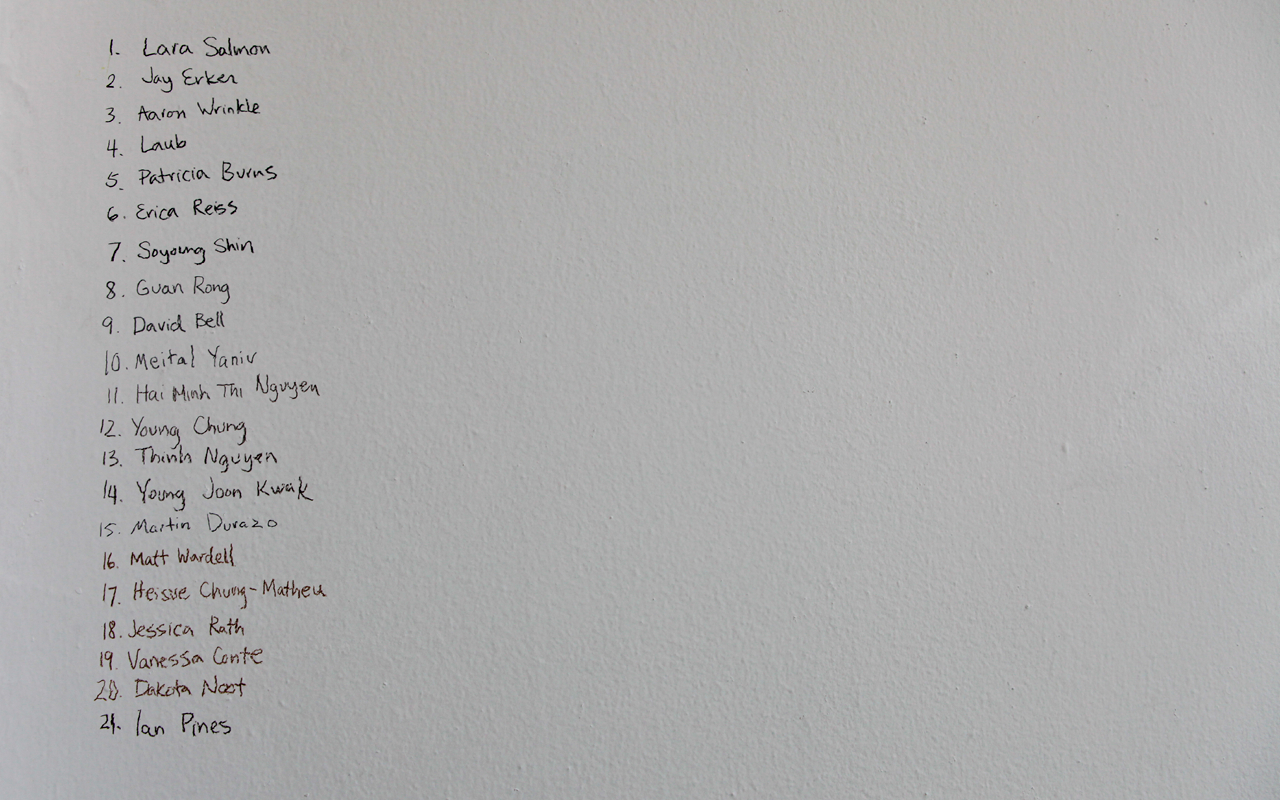 1. Lara Salmon
2. Jay Erker
3. Aaron Wrinkle
4. Laub
5. Patricia Burns
6. Erica Reiss
7. Soyoung Shin
8. Guan Rong
9. David Bell
10. Meital Yaniv
11. Hai Minh Thi Nguyen
12. Young Chung
13. Thinh Nguyen
14. Young Joon Kwak
15. Martin Durazo
16. Matt Wardell
17. Heisue Chung-Matheu
18. Jessica Rath
19. Vanessa Conte
20. Dakota Noot
21. Ian Pines